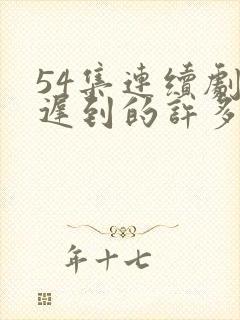 54集連續劇
遲到的許多
年十七